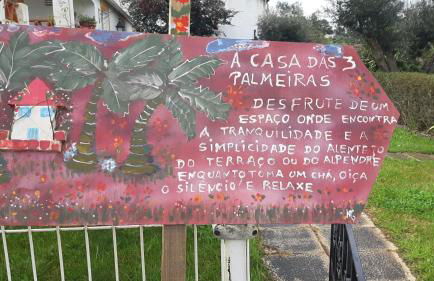 A CASA DAS 3
PALMEIRAS
DESFRUTE DE UM
ESPAÇO ONDE ENCONTRA
A TRANQUILIDADE E A
SIMPLICIDADE DO ALENTEJO
DO TERRAÇO OU DO ALPENDRE
ENQUANTO TOMA UM CHÁ, OIÇA
O SILÊNCIO E RELAXE